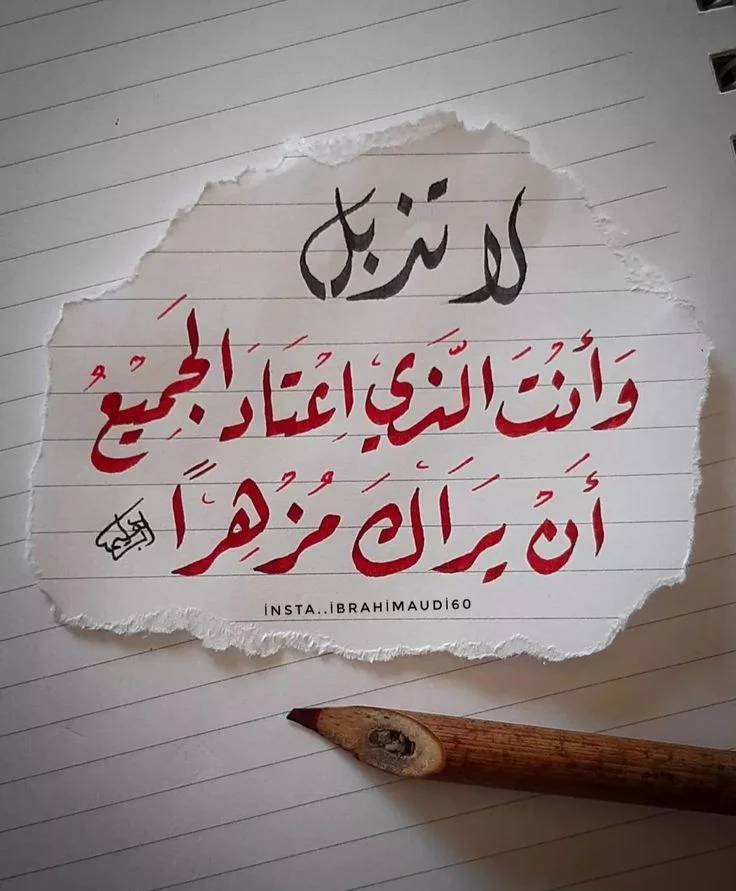 لا تذبل
وَأَنْتَ الَّذِي اِعْتَادَ الجَمِيْعُ
أَنْ يَرَاكَ مُزْهِرًا
İNSTA..İBRAHİMAUDİ60